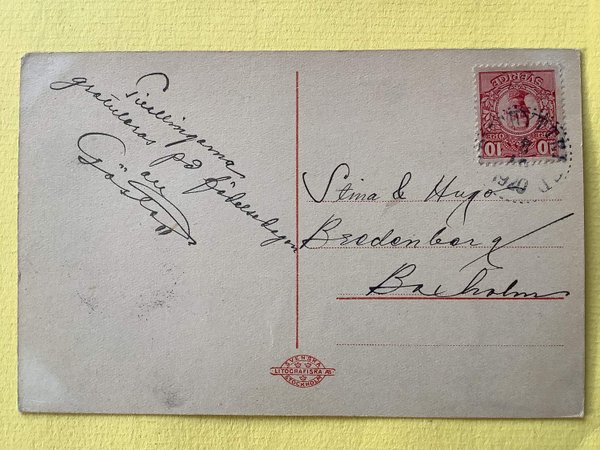 Tvillingarna
gratuleras på födelsedagen
av
Gösta
Stina & Hugo
Bredenberg
Boxholm
SVERIGE
10 10
SVENSKA
LITOGRAFISKA AB
STOCKHOLM